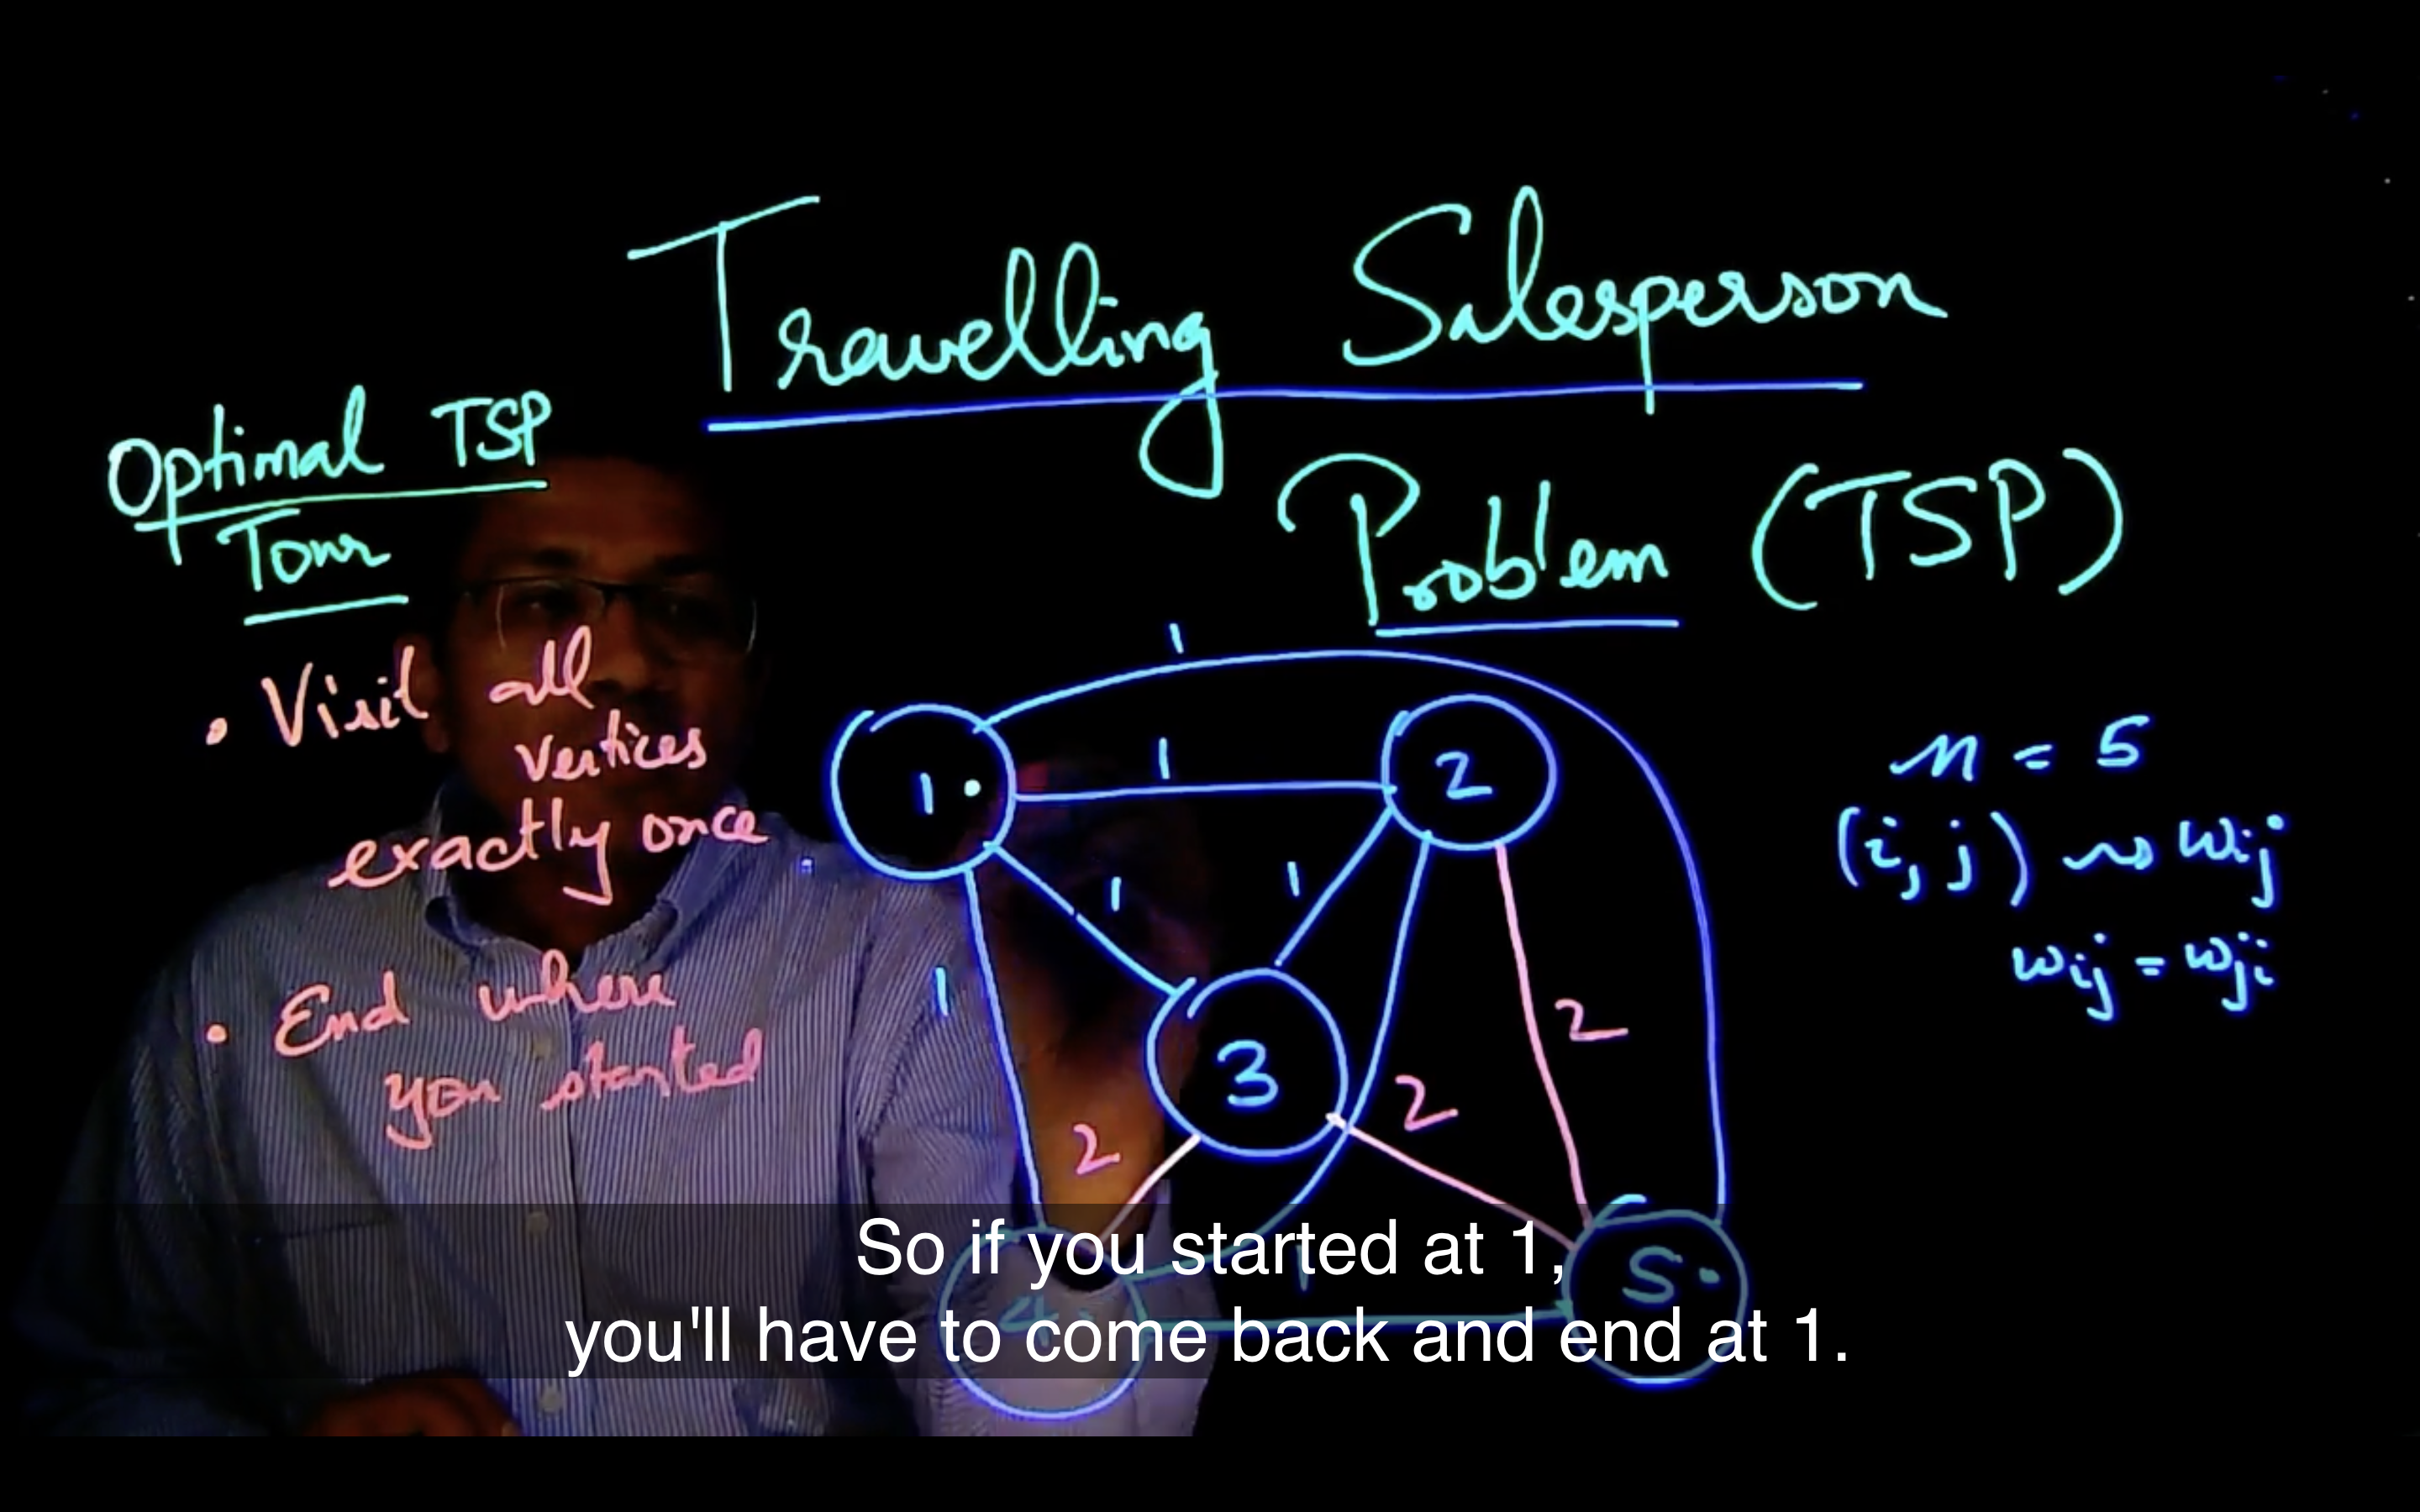 Travelling Salesperson
Problem (TSP)
Optimal TSP
Tour
• Visit all
vertices
exactly once
• End where
you started
1
1
1
2
1
1
1
3
2
2
2
4
1
5
n = 5
(i, j) ⇝ wij
wij = wji
So if you started at 1,
you'll have to come back and end at 1.